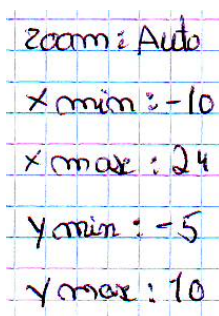 zoom: Auto
x min: -10
x max: 24
y min: -5
y max: 10